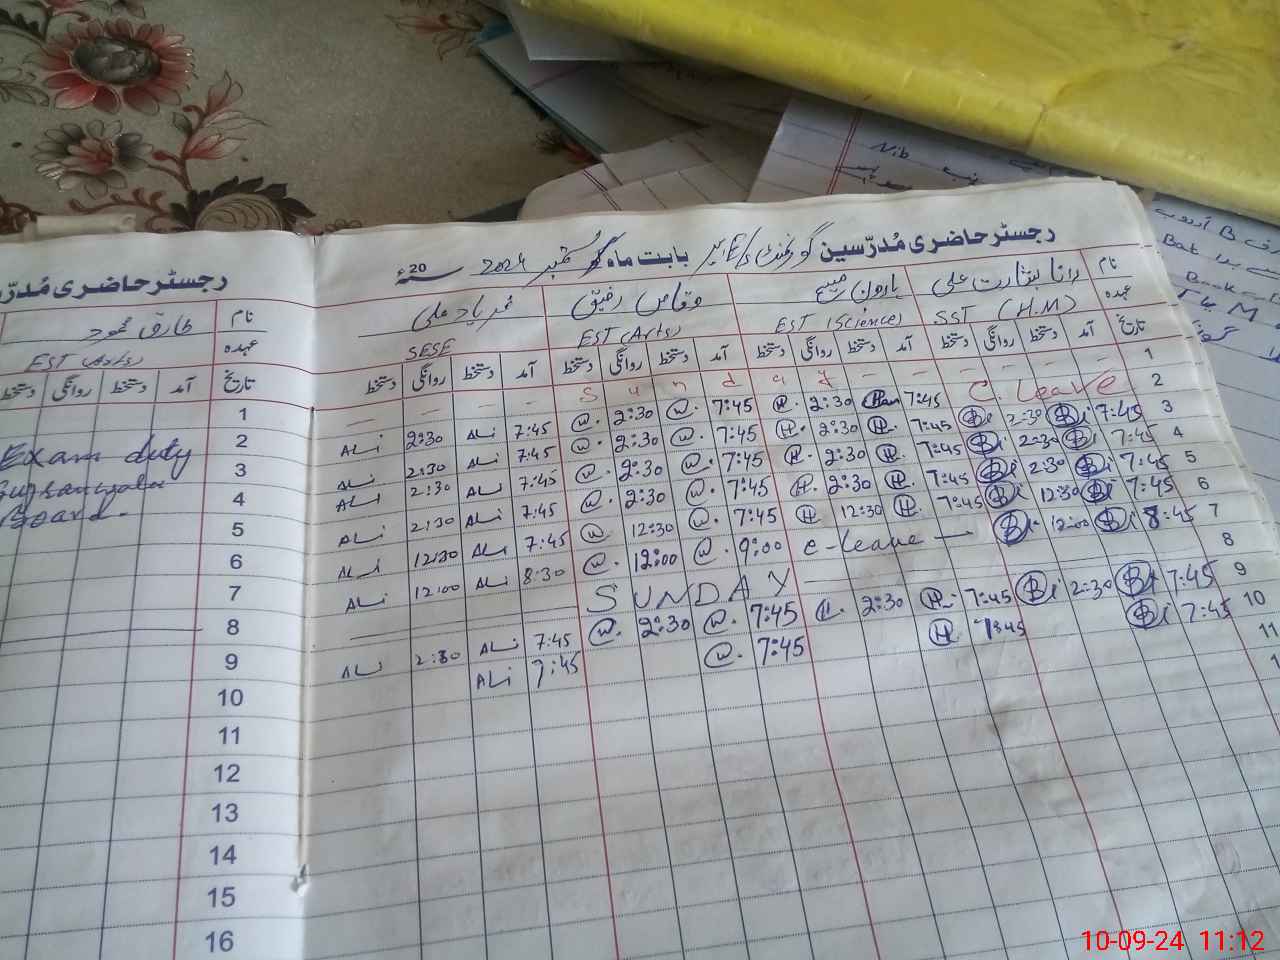 رجسٹر حاضری مُدرّسین گورنمنٹ E/S بابت ماہ ستمبر 2024 20ء
نام رانا بشارت علی ہارون مسیح وقاص رفیق محمد یاد علی
عہدہ SST (H.M) EST (Science) EST (Arts) SESE
تاریخ آمد دستخط روانگی دستخط آمد دستخط روانگی دستخط آمد دستخط روانگی دستخط آمد دستخط روانگی دستخط
1 - - - - - - Sunday - - - -
2 C. Leave 7:45 H. 2:30 H. 7:45 @. 2:30 @. 7:45 ALi 2:30 ALi
3 7:45 B 2:30 B 7:45 H. 2:30 H. 7:45 @. 2:30 @. 7:45 ALi 2:30 ALi
4 7:45 B 2:30 B 7:45 H. 2:30 H. 7:45 @. 2:30 @. 7:45 ALi 2:30 ALi
5 7:45 B 2:30 B 7:45 H. 2:30 H. 7:45 @. 2:30 @. 7:45 ALi 2:30 ALi
6 7:45 B 12:30 B 7:45 H. 12:30 H 7:45 @. 12:30 @ 7:45 ALi 12:30 ALi
7 8:45 B 12:00 B c-leave 9:00 @. 12:00 @. 8:30 ALi 12:00 ALi
8 SUNDAY
9 7:45 B 2:30 B 7:45 H. 2:30 H. 7:45 @. 2:30 @. 7:45 ALi 2:30 ALi
10 7:45 B 7:45 H 7:45 @. 7:45 ALi
11
رجسٹر حاضری مُدرّ
نام طارق محمود
عہدہ EST (Arts)
تاریخ آمد دستخط روانگی دستخط
1
2 Exam duty
3 Gujranwala
4 Board.
5
6
7
8
9
10
11
12
13
14
15
16
Nib
B
Bat
Book
M
10-09-24 11:12